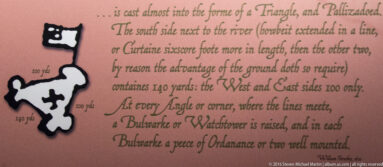 ...is cast almost into the forme of a Triangle, and Pallizadoed.
The south side next to the river (howbeit extended in a line,
or Curtaine sixscore foote more in length, then the other two,
by reason the advantage of the ground doth so require)
containes 140 yards: the West and East sides 100 only.
At every Angle or corner, where the lines meete,
a Bulwarke or Watchtower is raised, and in each
Bulwarke a peece of Ordanance or two well mounted.
100 yds
100 yds
140 yds
William Strachey, 1610
© 2015 Steven Michael Martin | album.us.com | all rights reserved